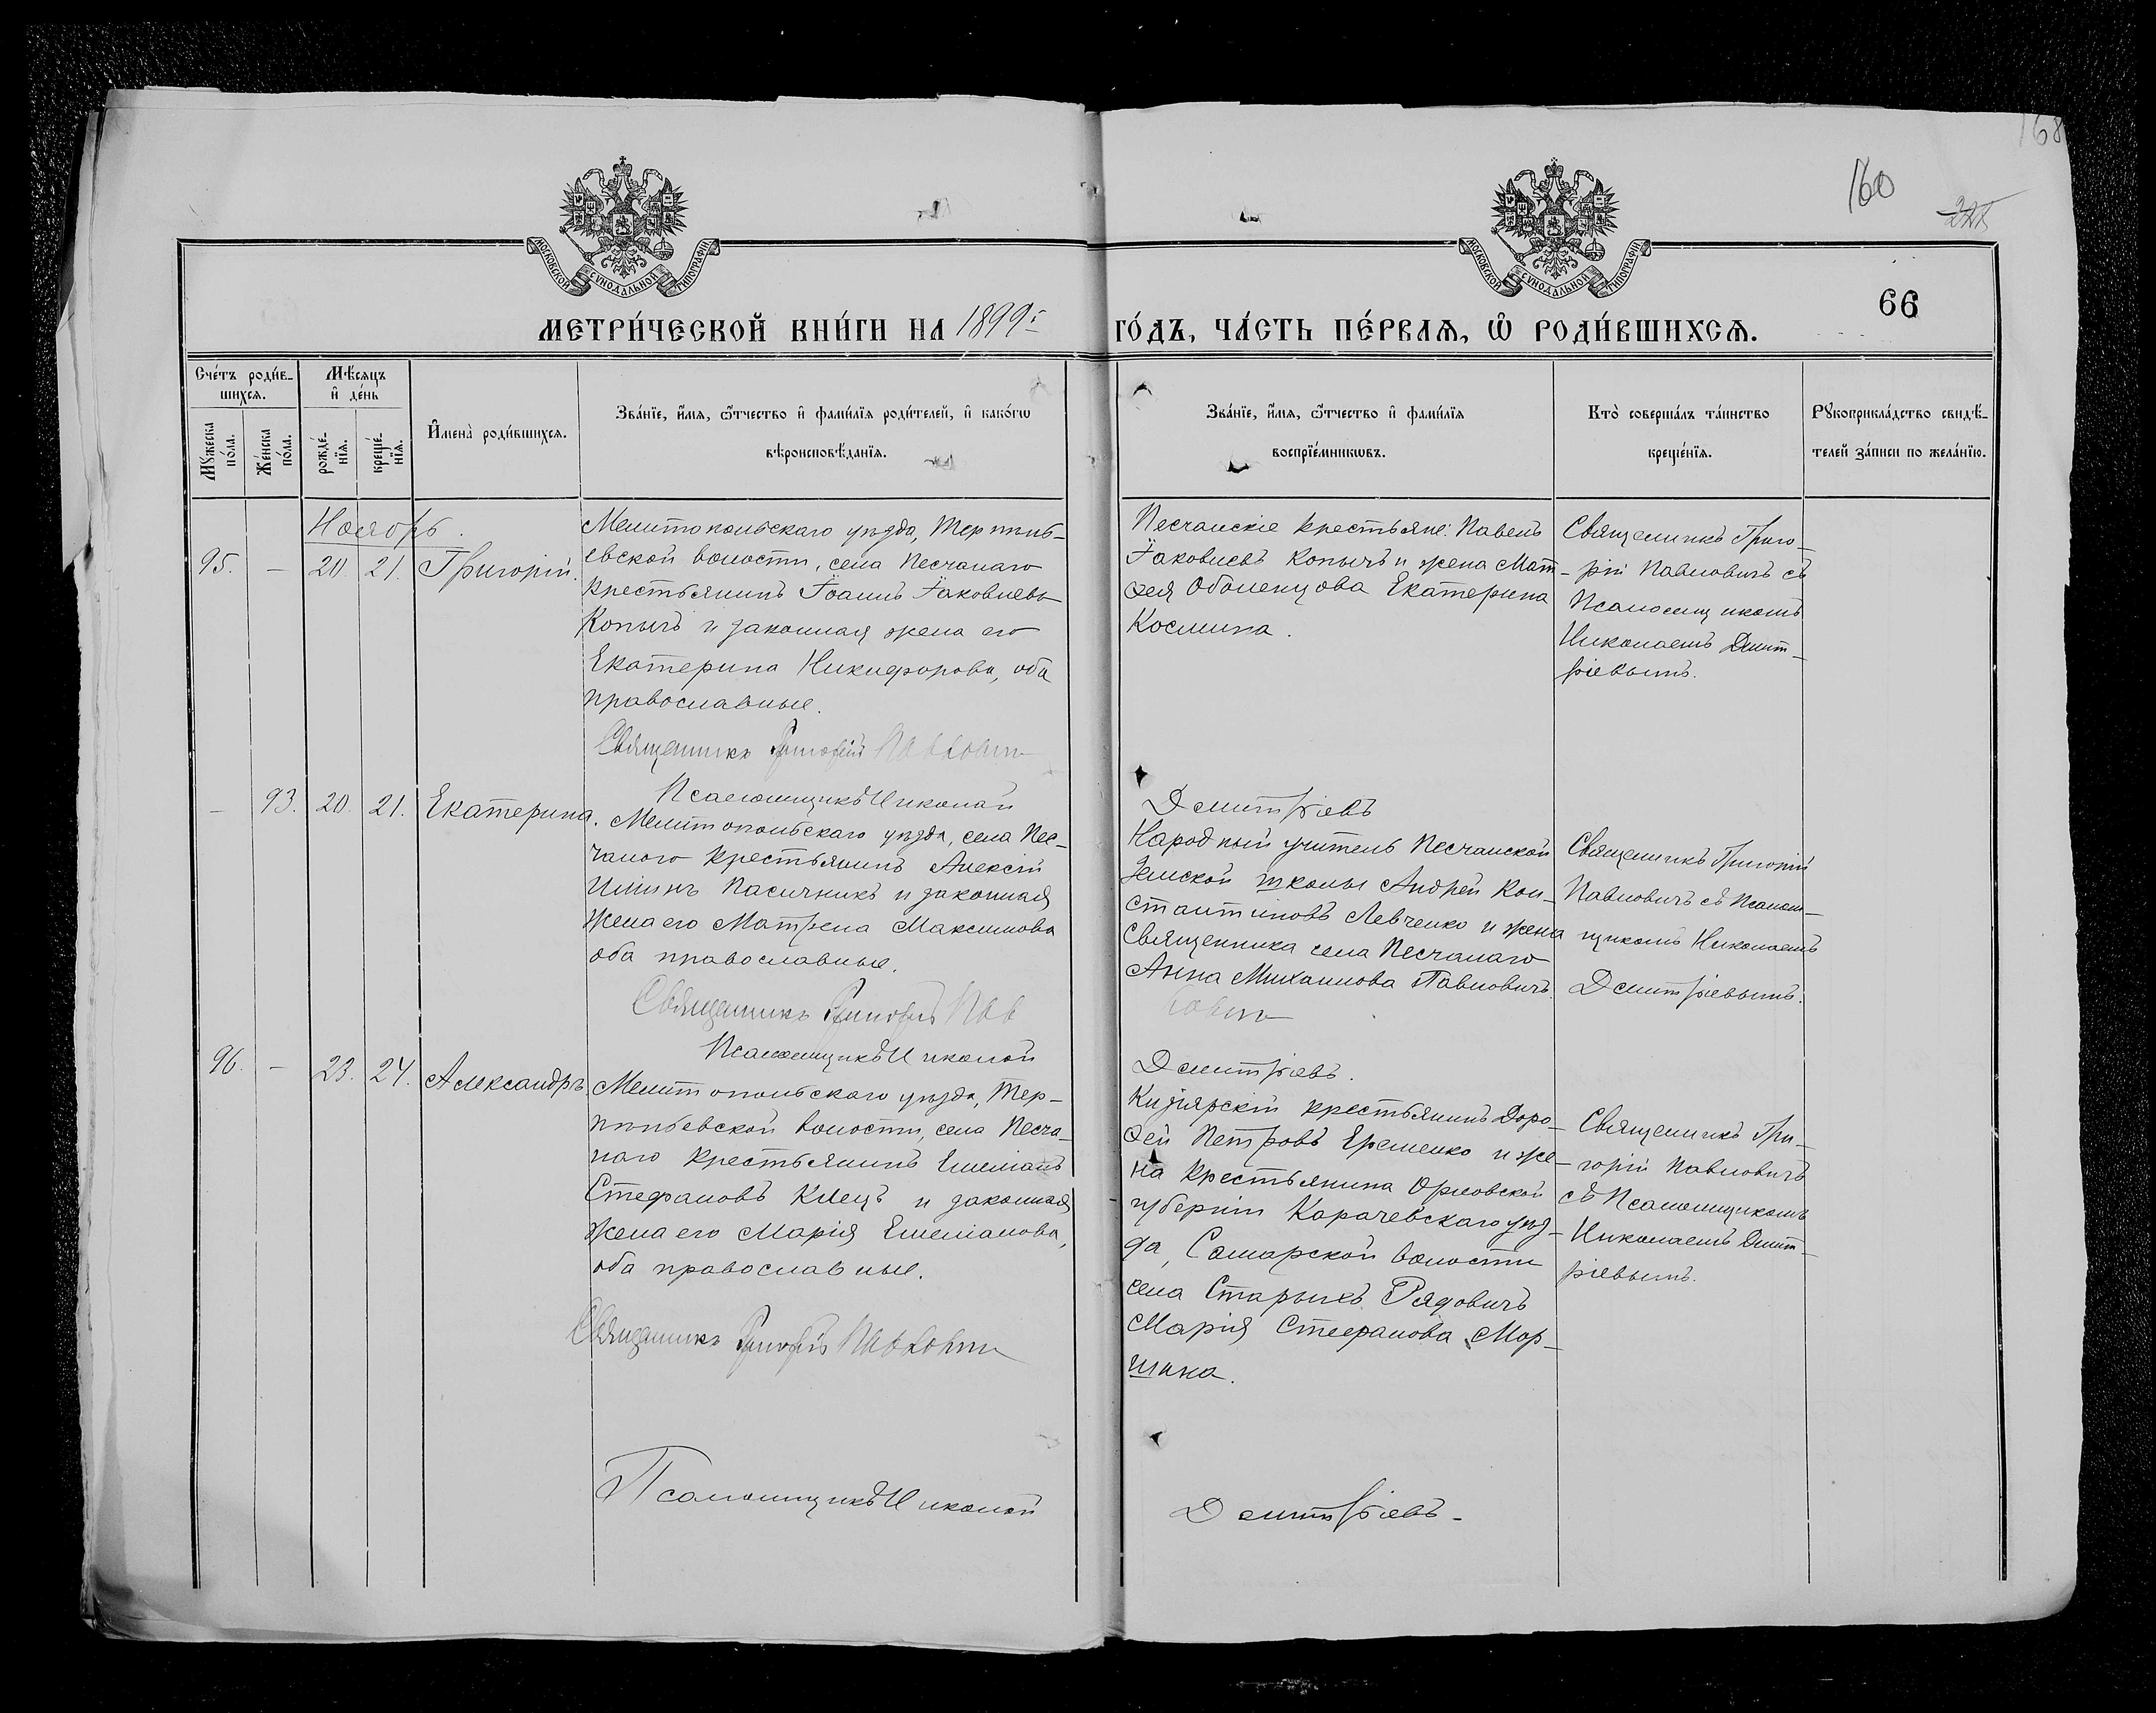 168
160
МОСКОВСКОЙ СУНОДАЛЬНОЙ ТИПОГРАФІИ
МОСКОВСКОЙ СУНОДАЛЬНОЙ ТИПОГРАФІИ
66
МЕТРИ́ЧЕСКОЙ КНИ́ГИ НА 1899й
ГО́ДЪ, ЧА́СТЬ ПЕ́РВАѦ, Ѡ҆ РОДИ́ВШИХСѦ.
Сче́тъ роди́в-
шихсѧ.
Мѣ́сѧцъ
и҆ де́нь
Мꙋ́жеска
по́ла.
Же́нска
по́ла.
рожде́-
нїѧ.
креще́-
нїѧ.
И҆мена̀ роди́вшихсѧ.
Зва́нїе, и҆́мѧ, ѻ҆́тчество и҆ фами́лїѧ роди́телей, и҆ како́гѡ
вѣроисповѣ́данїѧ.
Зва́нїе, и҆́мѧ, ѻ҆́тчество и҆ фами́лїѧ
воспрїе́мникѡвъ.
Кто̀ соверша́лъ та́инство
креще́нїѧ.
Рꙋкоприкла́дство свидѣ́-
телей за́писи по жела́нїю.
Ноябрь.
95. — 20. 21. Григорій.
Мелитопольскаго уѣзда, Терпѣнь-
евской волости, села Песчанаго
крестьянинъ Іоаннъ Іаковлевъ
Копычъ и законная жена его
Екатерина Никифорова, оба
православные.
Священникъ Григорій Павловичъ
Псаломщикъ Николай
Песчанскіе крестьяне: Павелъ
Іаковлевъ Копычъ и жена Мат-
ѳея Оболенцова Екатерина
Космина.
Дмитріевъ
Священникъ Григо-
рій Павловичъ съ
Псаломщикомъ
Николаемъ Дмит-
ріевымъ.
— 93. 20. 21. Екатерина.
Мелитопольскаго уѣзда, села Пес-
чанаго крестьянинъ Алексій
Ильинъ Пасичникъ и законная
жена его Матрена Максимова
оба православные.
Священникъ Григорій Пав
Псаломщикъ Николай
Народный учитель Песчанской
Земской школы Андрей Кон-
стантиновъ Левченко и жена
Священника села Песчанаго
Анна Михаилова Павловичъ.
ловичъ
Дмитріевъ.
Священникъ Григорій
Павловичъ съ Псалом-
щикомъ Николаемъ
Дмитріевымъ.
96. — 23. 24. Александръ.
Мелитопольскаго уѣзда, Тер-
пѣньевской волости, села Песча-
наго крестьянинъ Емеліанъ
Стефановъ Клецъ и законная
жена его Марія Емеліанова,
оба православные.
Священникъ Григорій Павловичъ
Псаломщикъ Николай
Кизіярскій крестьянинъ Доро-
ѳей Петровъ Еременко и же-
на крестьянина Орловской
губерніи Карачевскаго уѣз-
да, Самарской волости
села Старыхъ Рядовичъ
Марія Стефанова Мор-
шина.
Дмитріевъ-
Священникъ Гри-
горій Павловичъ
съ Псаломщикомъ
Николаемъ Дмит-
ріевымъ.